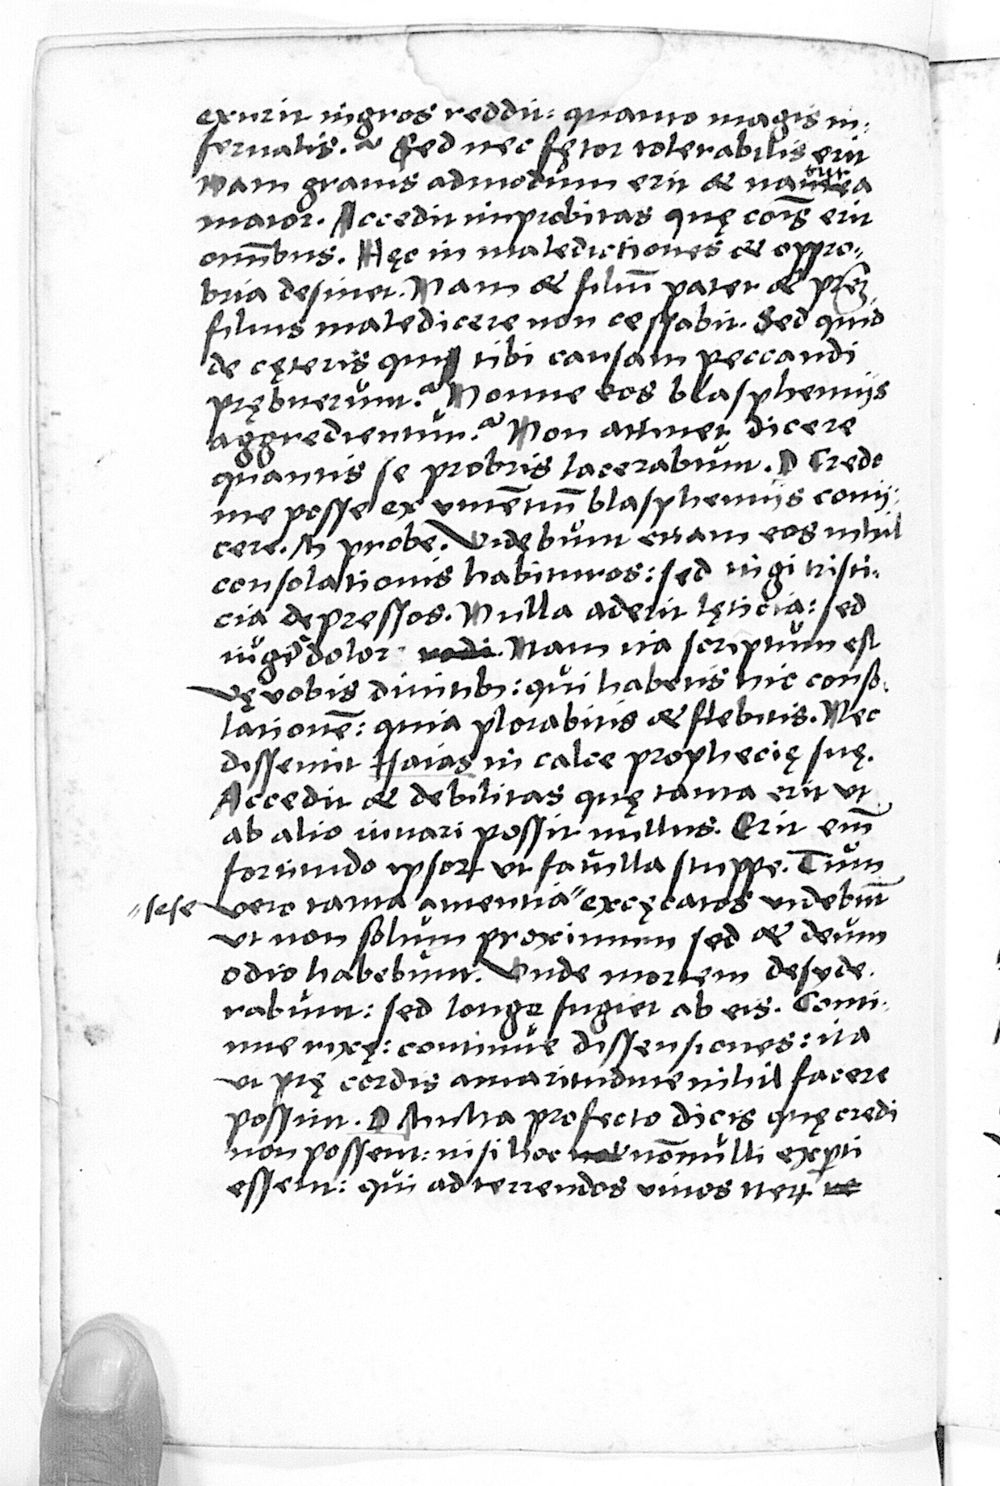 exurit nigros reddit: quanto magis in-
fernalis.? Sed nec fętor tolerabilis erit
Nam gravis admodum erit & nausea
maior. Accedit improbitas quę cōis erit
omībus. Hęc in maledictiones & oppro-
bria desinet. Nam & filiū pater & prēz
filius maledicere non cessabit. Sed quid
de cęteris qui tibi causam peccandi
prębuerunt.? Nonne eos blasphemijs
aggredientur.? Non attinet dicere
quantis se probris lacerabunt. D Credo
me posse ex viuētiū blasphemijs conij-
cere. M probe. Videbunt etiam eos nihil
consolationis habituros: sed iugi tristi-
cia depressos. Nulla aderit lęticia: sed
iugis dolor. Nam ita scriptum est
Vę vobis diuitib: qui habetis hic conso-
lationē: quia plorabitis & flebitis. Nec
dissentit Isaias in calce prophecię suę.
Accedit & debilitas quę tanta erit ut
ab alio iuuari possit nullus. Erit eīm
fortitudo ipsoꝝ ut fauilla stuppe. Tum
"sese vero tanta amentia" excęcatos videbūt
ut non solum proximum sed & deum
odio habebunt. Unde mortem desyde-
rabunt: sed longe fugiet ab eis. Conti-
nue rixę: continue dissensiones: ita
ut prę cordis amaritudine nihil facere
possint. D Multa profecto dicis quę credi
non possent: nisi hoc nōnulli exp̄ti
essent: qui ad terrendos vivos iteꝝ